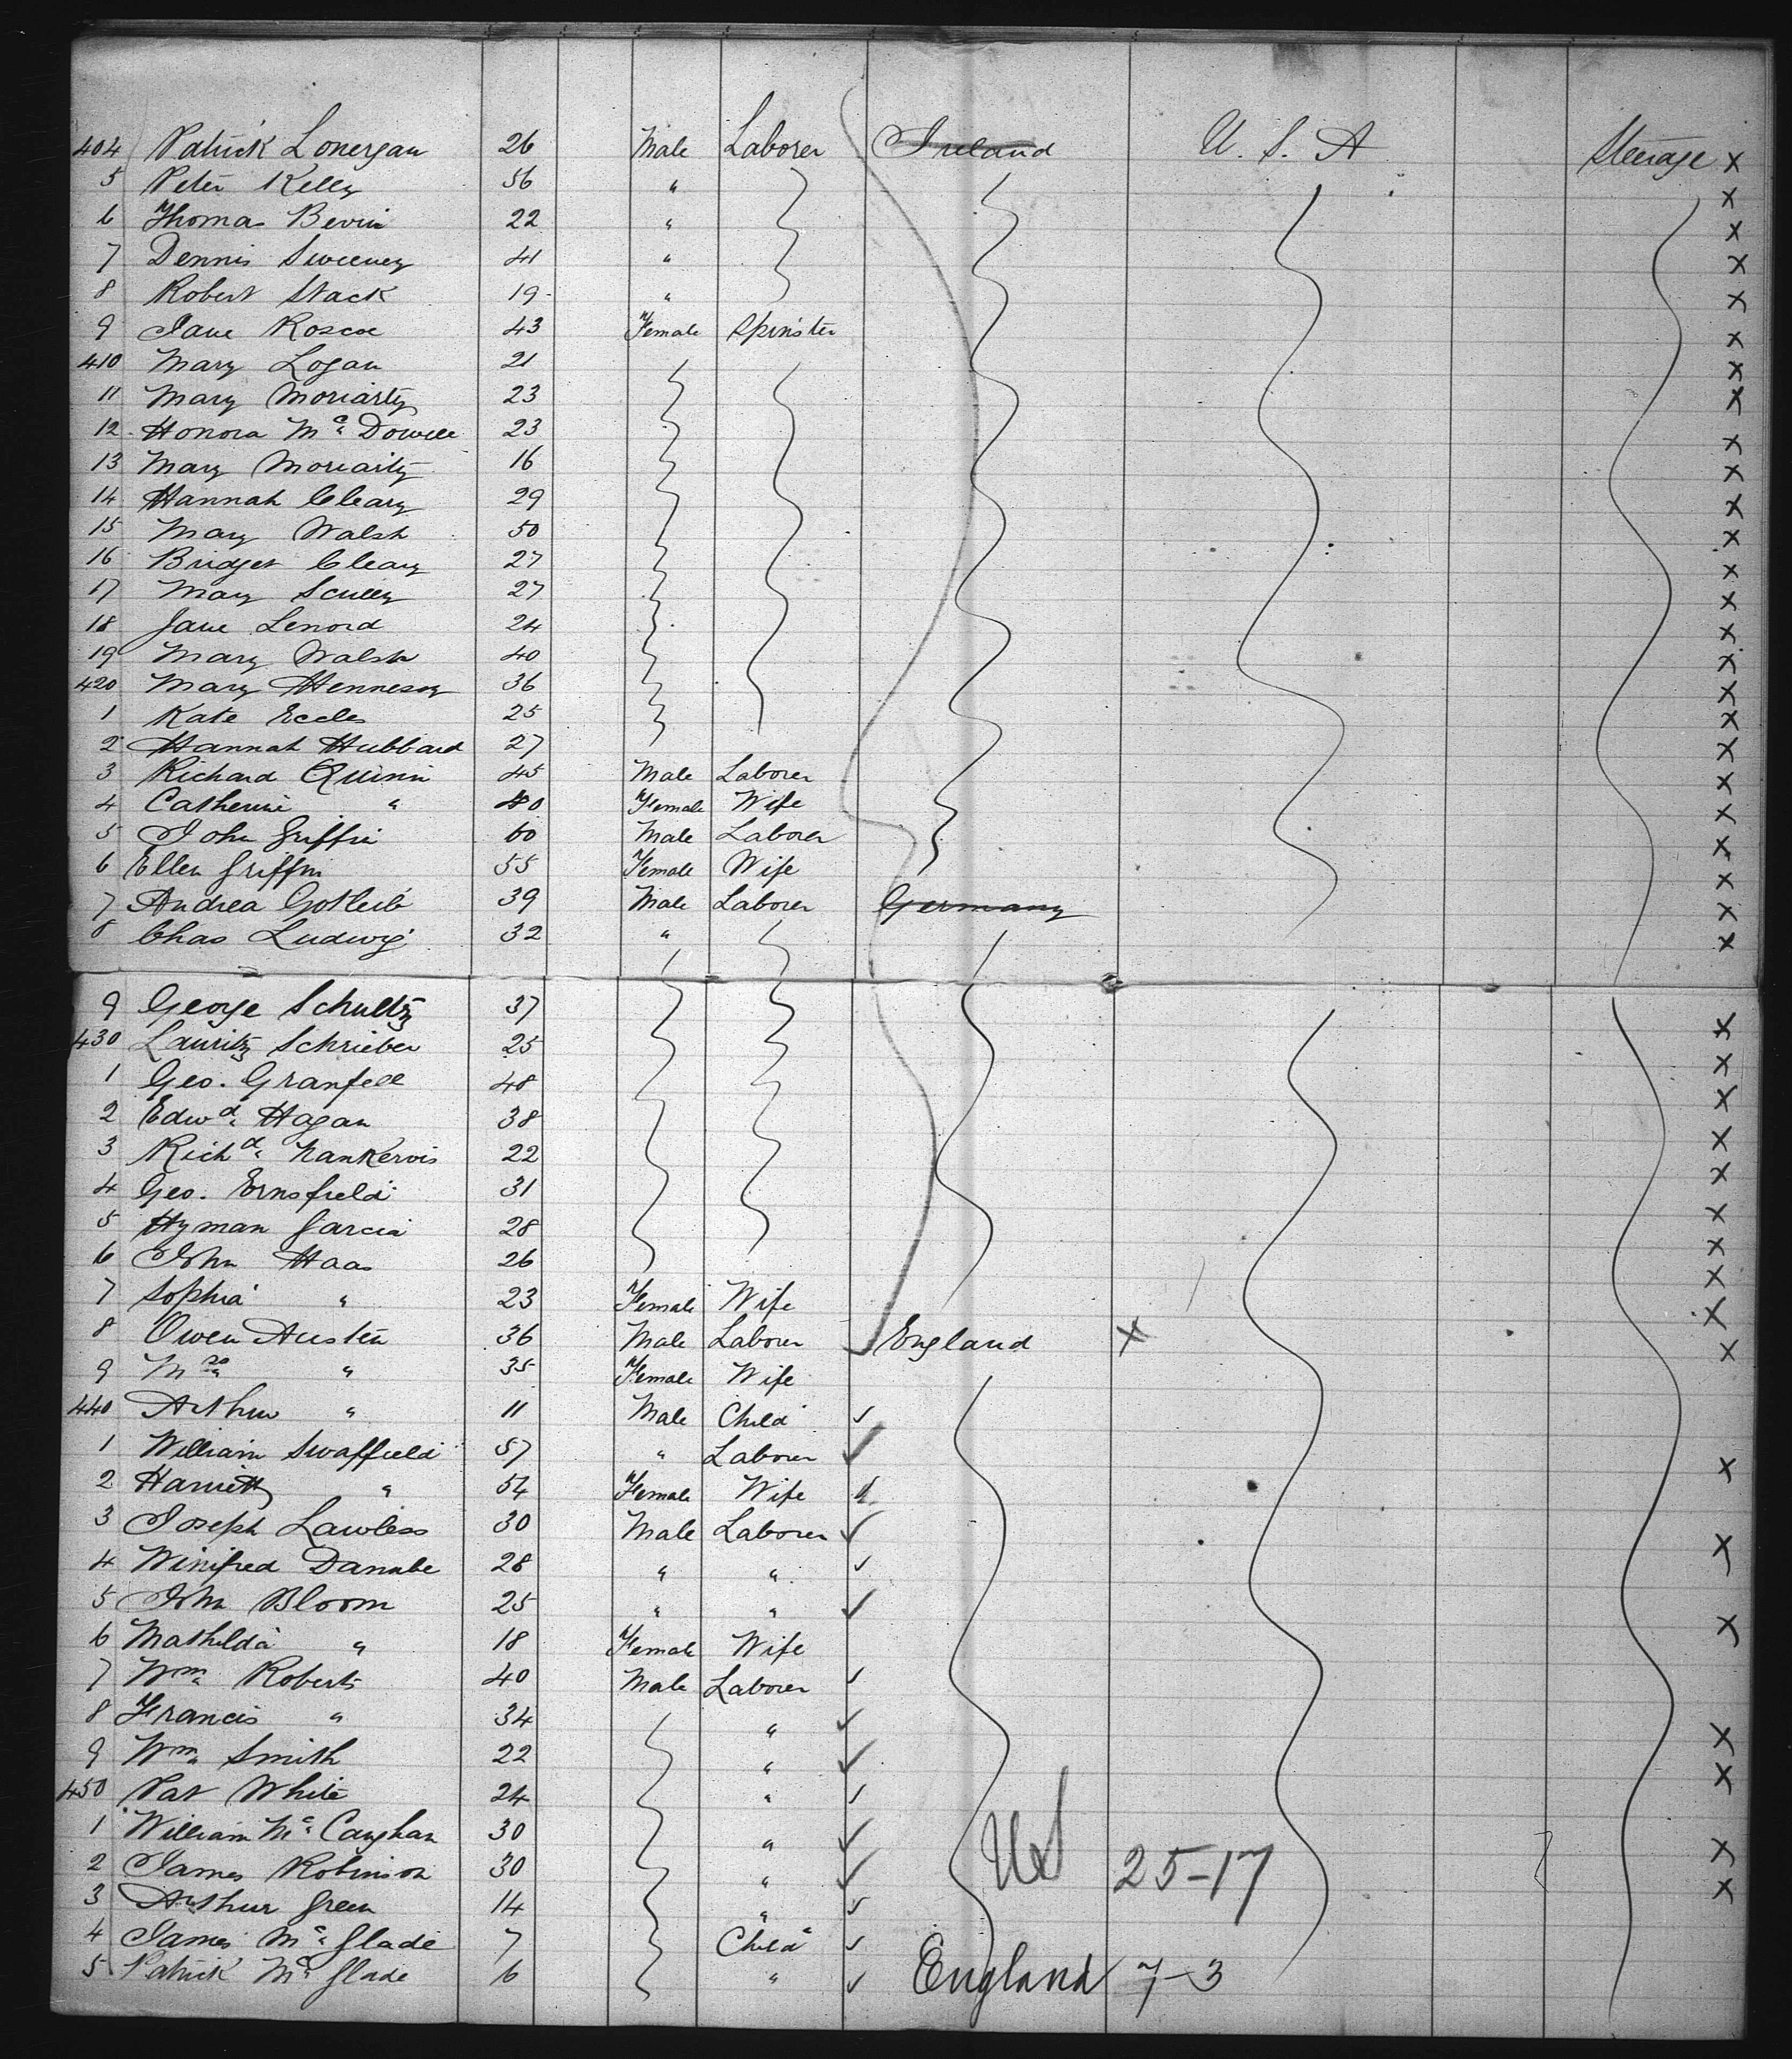 404 Patrick Lonergan 26 Male Laborer Ireland U. S. A Steerage X
5 Peter Kelly 56 " X
6 Thomas Bevin 22 " X
7 Dennis Sweeney 41 " X
8 Robert Stack 19 " X
9 Jane Roscoe 43 Female Spinster X
410 Mary Logan 21 X
11 Mary Moriarty 23 X
12 Honora Mc Dowell 23 X
13 Mary Moriarty 16 X
14 Hannah Cleary 29 X
15 Mary Walsh 50 X
16 Bridget Cleary 27 X
17 Mary Scully 27 X
18 Jane Lenord 24 X
19 Mary Walsh 40 X
420 Mary Hennessy 36 X
1 Kate Eccles 25 X
2 Hannah Hubbard 27 X
3 Richard Quinn 45 Male Laborer X
4 Catherine " 40 Female Wife X
5 John Griffin 60 Male Laborer X
6 Ellen Griffin 55 Female Wife X
7 Andrea Gotleib 39 Male Laborer Germany X
8 Chas Ludwig 32 " X
9 George Schultz 37 X
430 Lauritz Schrieber 25 X
1 Geo. Granfell 48 X
2 Edwd. Hagan 38 X
3 Richd. Nankervis 22 X
4 Geo. Ernsfield 31 X
5 Hyman Garcia 28 X
6 John Haas 26 X
7 Sophia " 23 Female Wife X
8 Owen Austin 36 Male Laborer ✓ England X X
9 Mrs " 35 Female Wife
440 Arthur " 11 Male Child ✓
1 William Swaffield 57 " Laborer ✓ X
2 Harriett " 54 Female Wife
3 Joseph Lawless 30 Male Laborer ✓ X
4 Winifred Danube 28 " " ✓
5 John Bloom 25 " " ✓ X
6 Mathilda " 18 Female Wife
7 Wm. Roberts 40 Male Laborer ✓
8 Francis " 34 " ✓ X
9 Wm. Smith 22 " ✓ X
450 Pat White 24 " ✓
1 William Mc Caughan 30 " ✓ X
2 James Robinson 30 " ✓ US 25-17 X
3 Arthur Green 14 " ✓
4 James Mc Glade 7 Child ✓
5 Patrick Mc Glade 6 " ✓ England 7-3